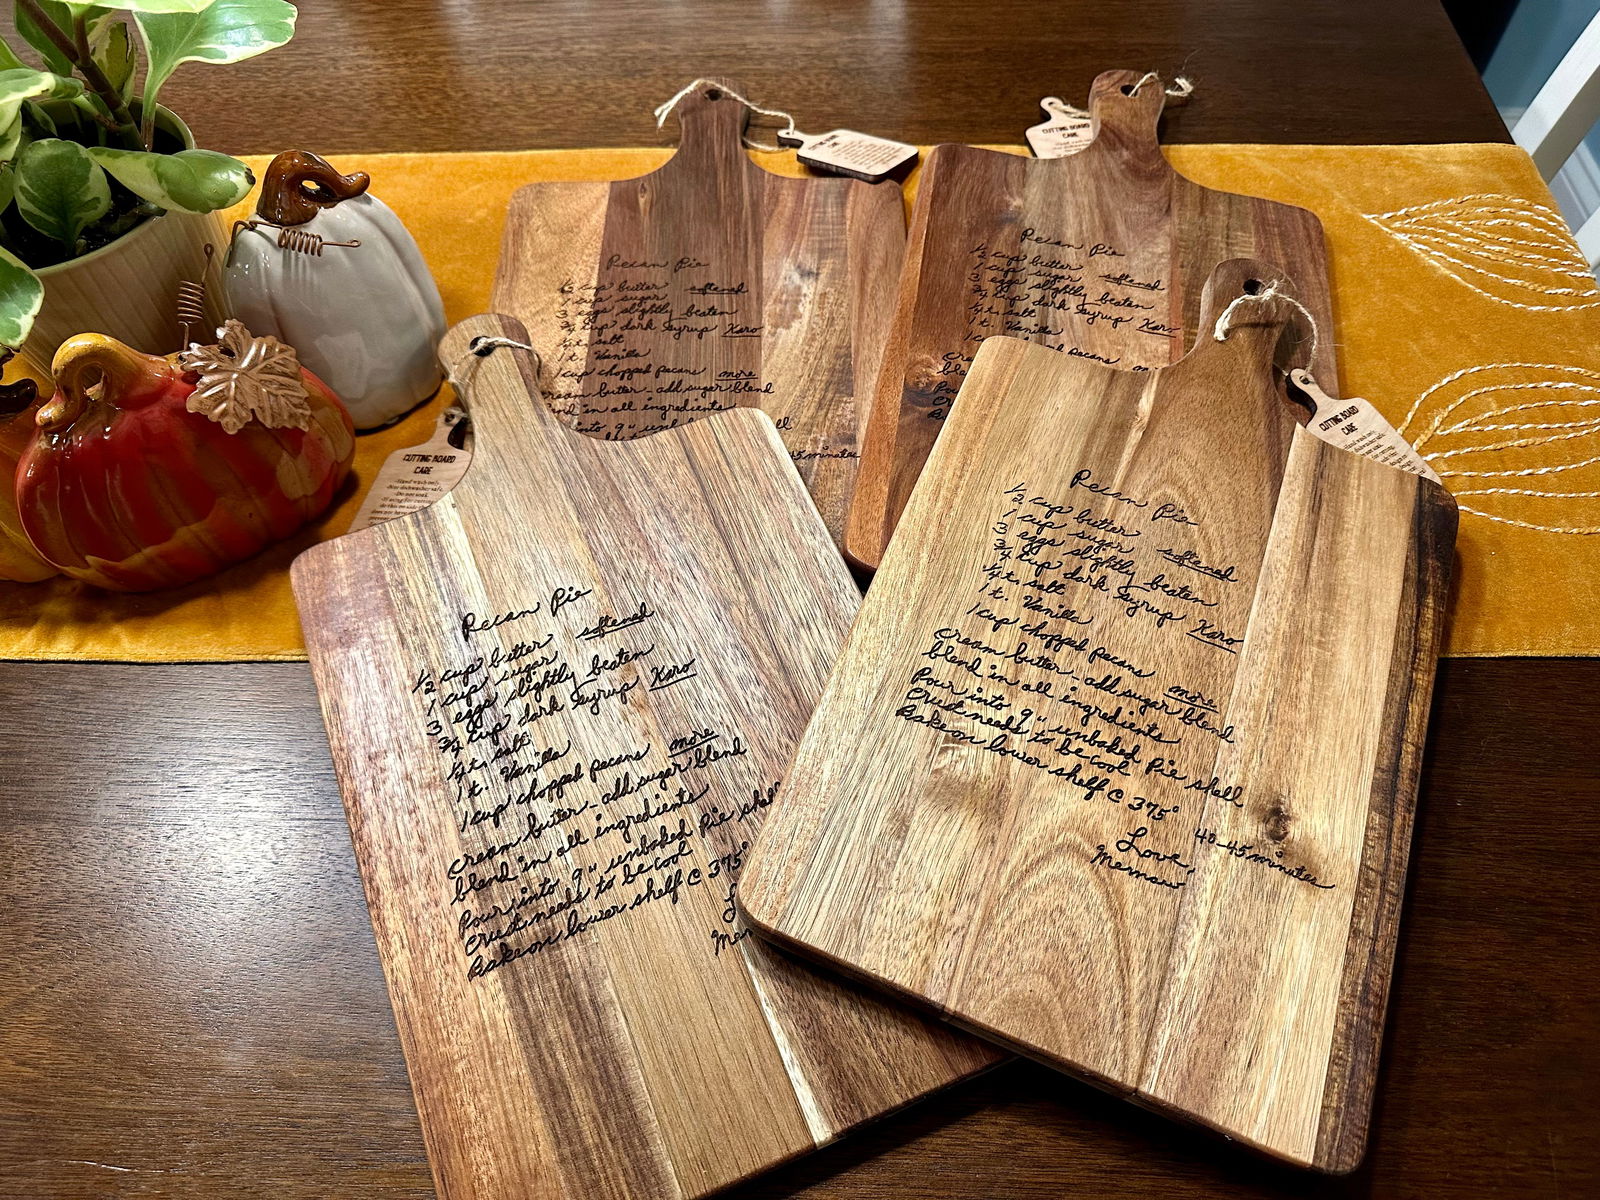 CUTTING BOARD
CARE
Pecan Pie
½ cup butter softened
1 cup sugar
3 eggs slightly beaten
¾ cup dark Syrup Karo
¼ t. salt
1 t. Vanilla
1 cup chopped pecans more
cream butter - add sugar blend
in all ingredients
into 9"
45 minutes
Pecan Pie
½ cup butter softened
1 cup sugar
3 eggs slightly beaten
¾ cup dark Syrup Karo
¼ t. salt
1 t. Vanilla
pecans
CUTTING BOARD
CARE
-Hand wash only
-Not dishwasher safe
-Do not soak
Pecan Pie
½ cup butter softened
1 cup sugar
3 eggs slightly beaten
¾ cup dark Syrup Karo
¼ t. salt
1 t. Vanilla
1 cup chopped pecans more
cream butter - add sugar blend
blend in all ingredients
Pour into 9" unbaked Pie shell
Crust needs to be cool
Bake on lower shelf @ 375°
CUTTING BOARD
CARE
Pecan Pie
½ cup butter softened
1 cup sugar
3 eggs slightly beaten
¾ cup dark Syrup Karo
¼ t. salt
1 t. Vanilla
1 cup chopped pecans more
cream butter - add sugar blend
blend in all ingredients
Pour into 9" unbaked Pie shell
Crust needs to be cool
Bake on lower shelf @ 375° 40-45 minutes
Love,
Memaw